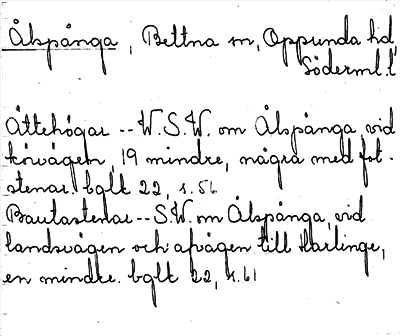 Ålspånga, Bettna sn, Oppunda hd,
Söderml. l.
Ättehögar -- W.S.W. om Ålspånga, vid
körvägen, 19 mindre, några med fot-
stenar. bglk 22, s. 56
Bautastenar -- S.W. om Ålspånga, vid
landsvägen och afvägen till Harlinge,
en mindre. bglk 22, s. 61